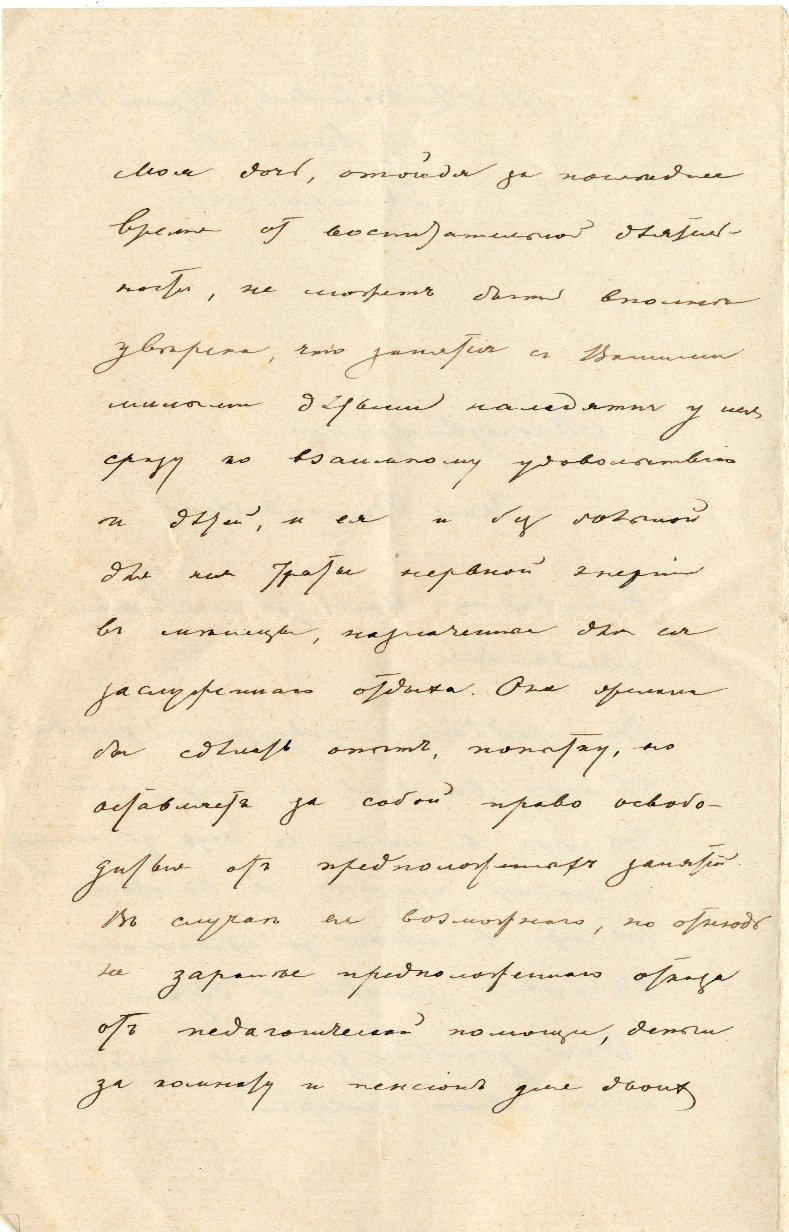 Моя дочь, отойдя за последнее
время от воспитательной дѣятель-
ности, не можетъ быть вполнѣ
увѣрена, что занятія съ Вашими
милыми дѣтьми наладятся у нея
сразу ко взаимному удовольствію
и дѣтей, и ея и безъ большой
для нея траты нервной энергіи
въ мѣсяцы, назначенные для ея
заслуженнаго отдыха. Она желала
бы сдѣлать опытъ, попытку, но
оставляетъ за собой право освобо-
диться отъ предположенныхъ занятій.
Въ случаѣ ея возможнаго, но отнюдь
не заранѣе предположеннаго отказа
отъ педагогической помощи, деньги
за комнату и пенсіонъ уже двоихъ